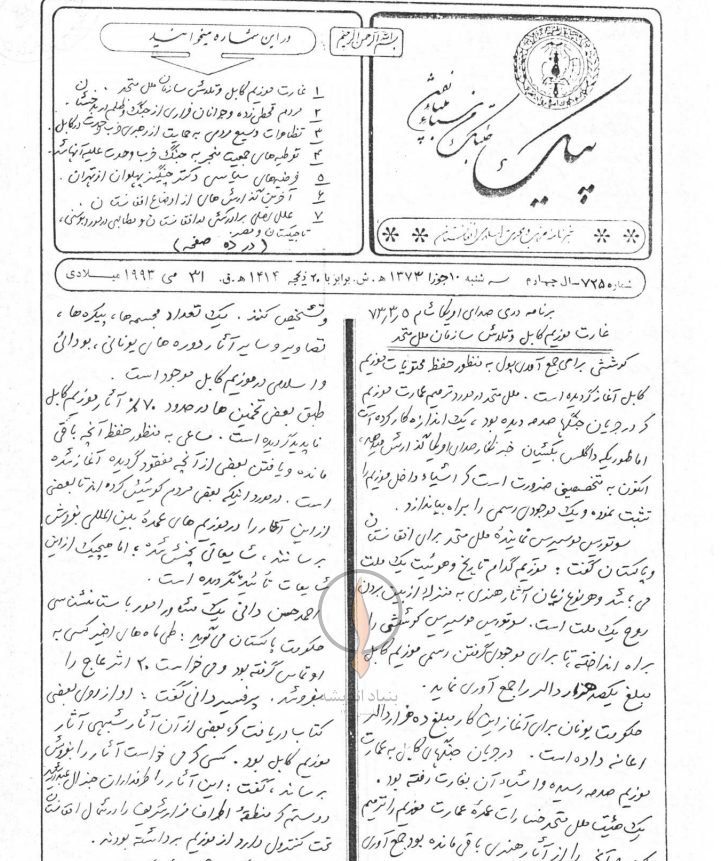 بسم الله الرحمن الرحیم
پیک
خبرنامه
در این شماره میخوانید
۱ غارت موزیم کابل و تلاش سازمان ملل متحد
۲ مردم قحطی زده و جوانان فراری از جنگ و ظلم در بدخشان
۳ تظاهرات وسیع مردمی به حمایت از رهبری حزب وحدت در کابل
۴ توطیه های جمعیت منجر به جنگ حزب وحدت علیه آنها شد.
۵ فرضیه های سیاسی دکتر چنگیز پهلوان از تهران
۶ آخرین گذارش های از اوضاع افغانستان
۷ علل اصلی برادرکشی در افغانستان و مطالبی در مورد بوسنی،
تاجیکستان و مصر.
(در ده صفحه)
شماره ۷۲۵ - سال چهارم سه شنبه ۱۰ جوزا ۱۳۷۳ ه.ش. برابر با ۲۰ ذیحجه ۱۴۱۴ ه.ق. ۳۱ می ۱۹۹۳ میلادی
برنامه دری صدای امریکا شام ۷۳٫۳٫۵
غارت موزیم کابل و تلاش سازمان ملل متحد
کوششی برای جمع آوری پول به منظور حفظ محتویات موزیم
کابل آغاز گردیده است. ملل متحد در مورد ترمیم عمارت موزیم
که در جریان جنگها صدمه دیده بود، یک اندازه کار کرده است
اما طوریکه داگلس بکشیان خبرنگار صدای امریکا گذارش میدهد،
اکنون به تشخیص ضرورت است که اشیاء داخل موزیم را
تثبت نموده و یک موجودی رسمی را براه بیاندازد.
سوتریس موسیریس نماینده ملل متحد برای افغانستان
و پاکستان گفت: موزیم کدام تاریخ و هویت یک ملت
می باشد و هر نوع زیان آثار هنری به منزله از بین بردن
روح یک ملت است. سوتریس موسیریس کوششی را
براه انداخته تا برای موجودی گرفتن رسمی موزیم کابل
مبلغ یکصد هزار دالر را جمع آوری نماید.
حکومت یونان برای آغاز این کار مبلغ ده هزار دالر
اعانه داده است. در جریان جنگهای کابل به عمارت
موزیم صدمه رسیده و اشیاء آن بغارت رفته بود.
یک هیئت ملل متحد خسارات عمده عمارت موزیم را ترمیم
را از آثار هنری باقی مانده بود جمع آوری
و تشخیص کنند. یک تعداد مجسمه ها، پیکره ها،
تصاویر و سایر آثار دوره های یونانی، بودائی
و اسلامی در موزیم کابل موجود است.
طبق بعضی تخمین ها در حدود ۷۰٪ آثار موزیم کابل
ناپدید گردیده است. مساعی به منظور حفظ آنچه باقی
مانده و یافتن بعضی از آنچه مفقود گردیده آغاز شده
است. در مورد اینکه بعضی مردم کوشیش کرده اند تا بعضی
از این آثار را در موزیم های عمده بین المللی بفروش
برسانند، شایعاتی پخش شده؛ اما هیچیک از این
شایعات تائید نگردیده است.
احمد حسن دانی یک مشاور امور باستانشناسی
حکومت پاکستان می گوید: طی ماه های اخیر کسی به
او تماس گرفته بود و می خواست ۲۰ اثر عاج را
بفروشد. پرفیسر دانی گفت: او از روی بعضی
کتاب دریافت که بعضی از آن آثار شبیهی آثار
موزیم کابل بود. کسی که می خواست آثار را بفروش
برساند، گفت: این آثار را طرفداران جنرال عبدالرشید
دوستم که منطقه اطراف مزار شریف را در شمال افغانستان
تحت کنترول دارد از موزیم برداشته بودند.
بنیاد اندیشه